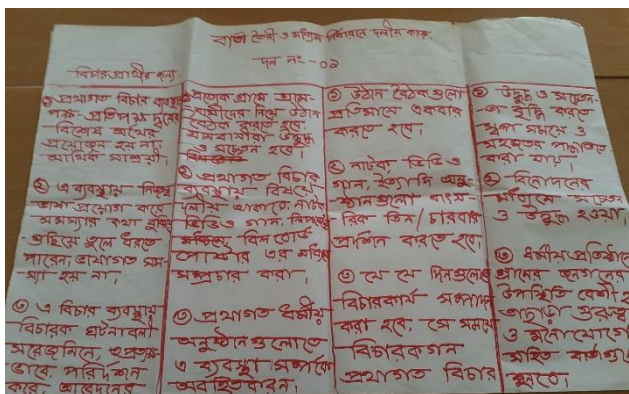 বার্তা তৈরী ও মাধ্যম নির্ধারনে দলীয় কাজ
দল নং - ০১
বিচারপ্রার্থীর জন্য
① প্রথাগত বিচার ব্যবস্থায়
পক্ষ-প্রতিপক্ষ দুজনের
বিশেষ অর্থের
প্রয়োজন হয় না,
আর্থিক সাশ্রয়ী।
② এ ব্যবস্থায় নিজস্ব
ভাষা প্রয়োগ করে
সমস্যার কথা
গুছিয়ে তুলে ধরতে
পারেন, ভাষাগত সম-
স্যা হয় না।
③ এ বিচার ব্যবস্থায়
বিচারক ঘটনাবলী
সরেজমিনে,
ভাবে, পরিদর্শন
করে, আবেদনের
① প্রত্যেক গ্রামে গ্রাম-
বাসীদের নিয়ে উঠান
বৈঠক করতে হবে,
গ্রামবাসীরা উদ্বুদ্ধ
ও সচেতন হবে।
② প্রথাগত বিচার
ব্যবস্থায় বিষয়ে
থাকতে, নাটক
ভিডিও গান,
বিল বোর্ড
পোষ্টার এর মাধ্যমে
সম্প্রচার করা।
③ প্রথাগত ধর্মীয়
অনুষ্ঠানগুলোতে
এ ব্যবস্থা সম্পর্কে
অবহিতকরন।
① উঠান বৈঠকগুলো
প্রতিমাসে একবার
করতে হবে।
② নাটক, ভিডিও
গান, ইত্যাদি অনু-
ষ্ঠানগুলো বাৎস-
রিক তিন/চারবার
প্রদর্শন করতে হবে।
③ যে যে দিনগুলোতে
বিচারকার্য সম্পাদন
করা হবে, সে সময়ে
বিচারকগন
প্রথাগত বিচার
① উদ্বুদ্ধ ও সচেতন-
তা বৃদ্ধি করতে
স্বল্প সময়ে ও
সহজতর পদ্ধতিতে
করা যায়।
② বিনোদনের
মাধ্যমে সচেতন
ও উদ্বুদ্ধ হওয়া।
③ ধর্মীয় প্রতিষ্ঠানে
গ্রামের জনগনের
উপস্থিতি বেশী হয়
তাছাড়া গুরুত্ব
ও মনোযোগের
সহিত